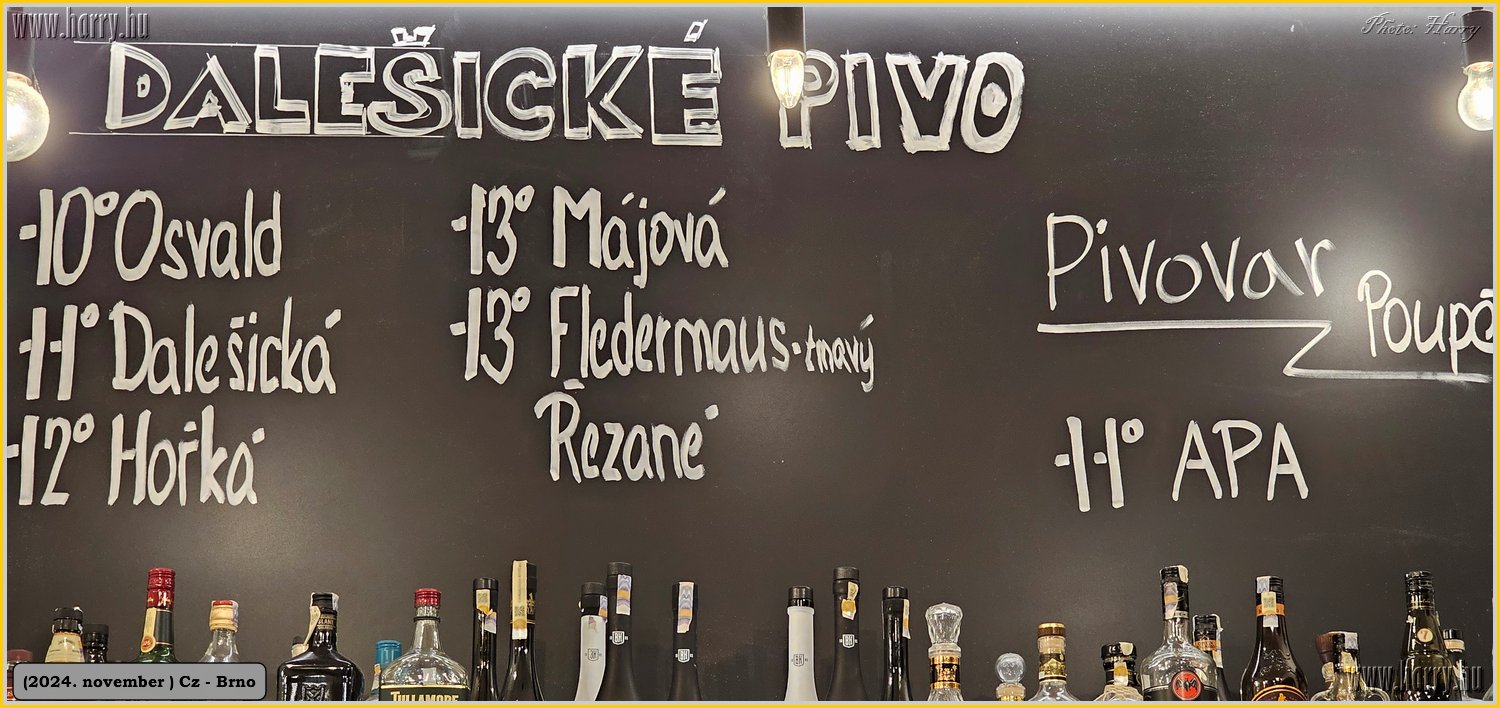 www.harry.hu
Photo: Harry
DALEŠICKÉ PIVO
-10° Osvald
-11° Dalešická
-12° Hořká
-13° Májová
-13° Fledermaus - tmavý
Řezané
Pivovar
Poupě
-11° APA
TULLAMORE
(2024. november ) Cz - Brno
www.harry.hu